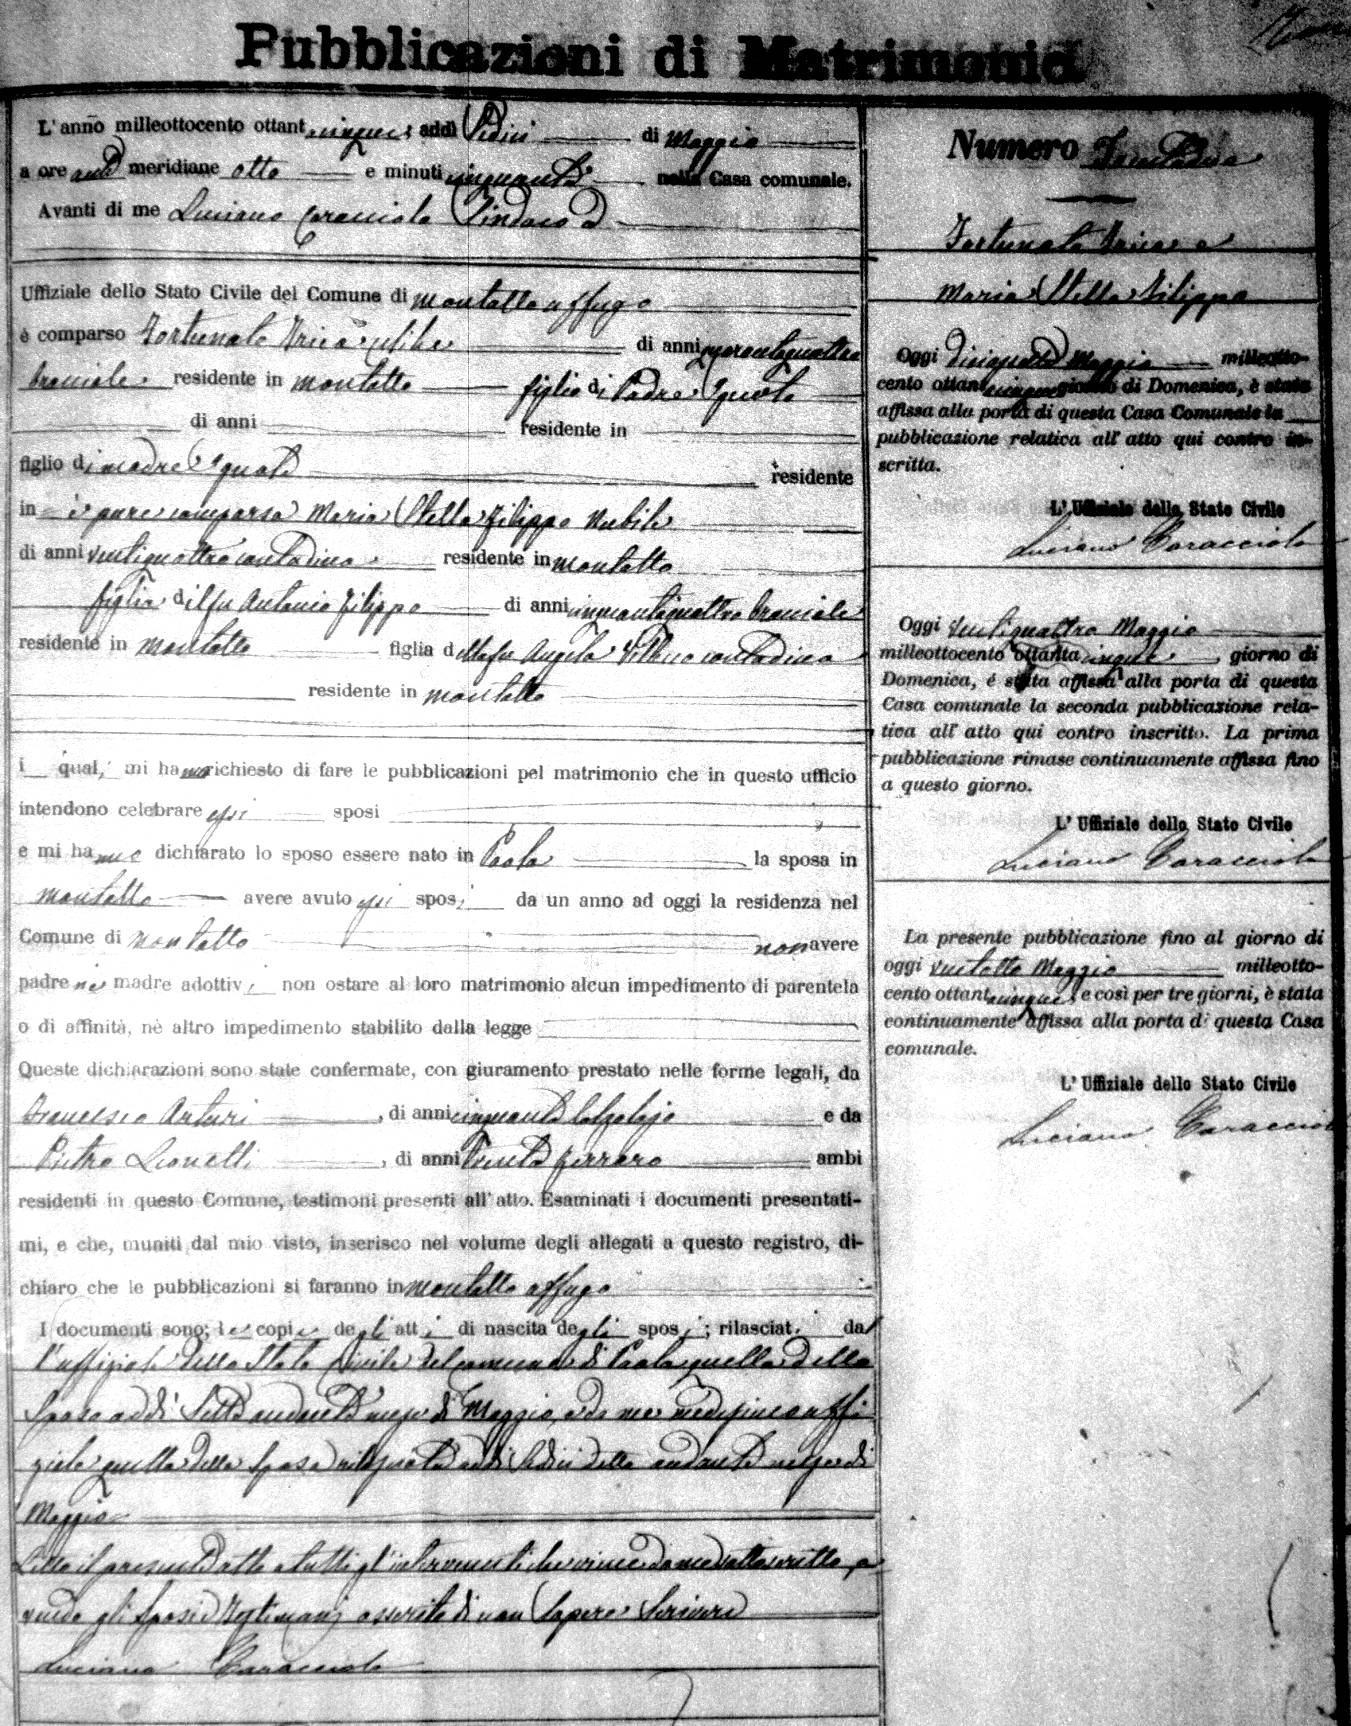 Pubblicazioni di Matrimonio
L'anno milleottocento ottantacinque, addì Sedici di Maggio
a ore anti meridiane otto e minuti cinquanta nella Casa comunale.
Avanti di me Luciano Caracciolo Sindaco
Uffiziale dello Stato Civile del Comune di Montalto uffugo
è comparso Fortunato celibe di anni quarantaquattro
bracciale residente in Montalto figlio di Padre Ignoto
di anni residente in
figlio di madre Ignota residente
in è pure comparsa Maria Stella Filippo Nubile
di anni ventiquattro contadina residente in Montalto
figlia del fu Antonio Filippo di anni cinquantaquattro bracciale
residente in Montalto figlia della fu Angela contadina
residente in Montalto
i quali mi hanno richiesto di fare le pubblicazioni pel matrimonio che in questo ufficio
intendono celebrare essi sposi
e mi hanno dichiarato lo sposo essere nato in Paola la sposa in
Montalto avere avuto essi sposi da un anno ad oggi la residenza nel
Comune di Montalto non avere
padre nè madre adottivi non ostare al loro matrimonio alcun impedimento di parentela
o di affinità, nè altro impedimento stabilito dalla legge
Queste dichiarazioni sono state confermate, con giuramento prestato nelle forme legali, da
Francesco Arturi, di anni cinquanta Calzolajo e da
Pietro Lionetti, di anni Trenta ferraro ambi
residenti in questo Comune, testimoni presenti all'atto. Esaminati i documenti presentati-
mi, e che, muniti dal mio visto, inserisco nel volume degli allegati a questo registro, di-
chiaro che le pubblicazioni si faranno in Montalto uffugo
I documenti sono; le copie degli atti di nascita degli sposi; rilasciati da
l'uffiziale dello Stato Civile del comune di Paola quella dello
Sposo addì Sette andante mese di Maggio, e da me medesimo uffi
ziale quella della Sposa rilasciata addì Sedici dello andante mese di
Maggio
Letto il presente atto a tutti gl'intervenuti che viene da me sottoscritto, a
vendo gli Sposi e Testimonj asserito di non Sapere Scrivere
Luciano Caracciolo
Numero Trentadue
Fortunato e
Maria Stella Filippo
Oggi diciasette Maggio milleotto-
cento ottantacinque giorno di Domenica, è stata
affissa alla porta di questa Casa Comunale la
pubblicazione relativa all'atto qui contro in-
scritta.
L'Uffiziale dello Stato Civile
Luciano Caracciolo
Oggi Ventiquattro Maggio
milleottocento ottantacinque, giorno di
Domenica, é stata affissa alla porta di questa
Casa comunale la seconda pubblicazione rela-
tiva all'atto qui contro inscritto. La prima
pubblicazione rimase continuamente affissa fino
a questo giorno.
L'Uffiziale dello Stato Civile
Luciano Caracciolo
La presente pubblicazione fino al giorno di
oggi Ventotto Maggio milleotto-
cento ottantacinque, e così per tre giorni, è stata
continuamente affissa alla porta di questa Casa
comunale.
L'Uffiziale dello Stato Civile
Luciano Caracciolo